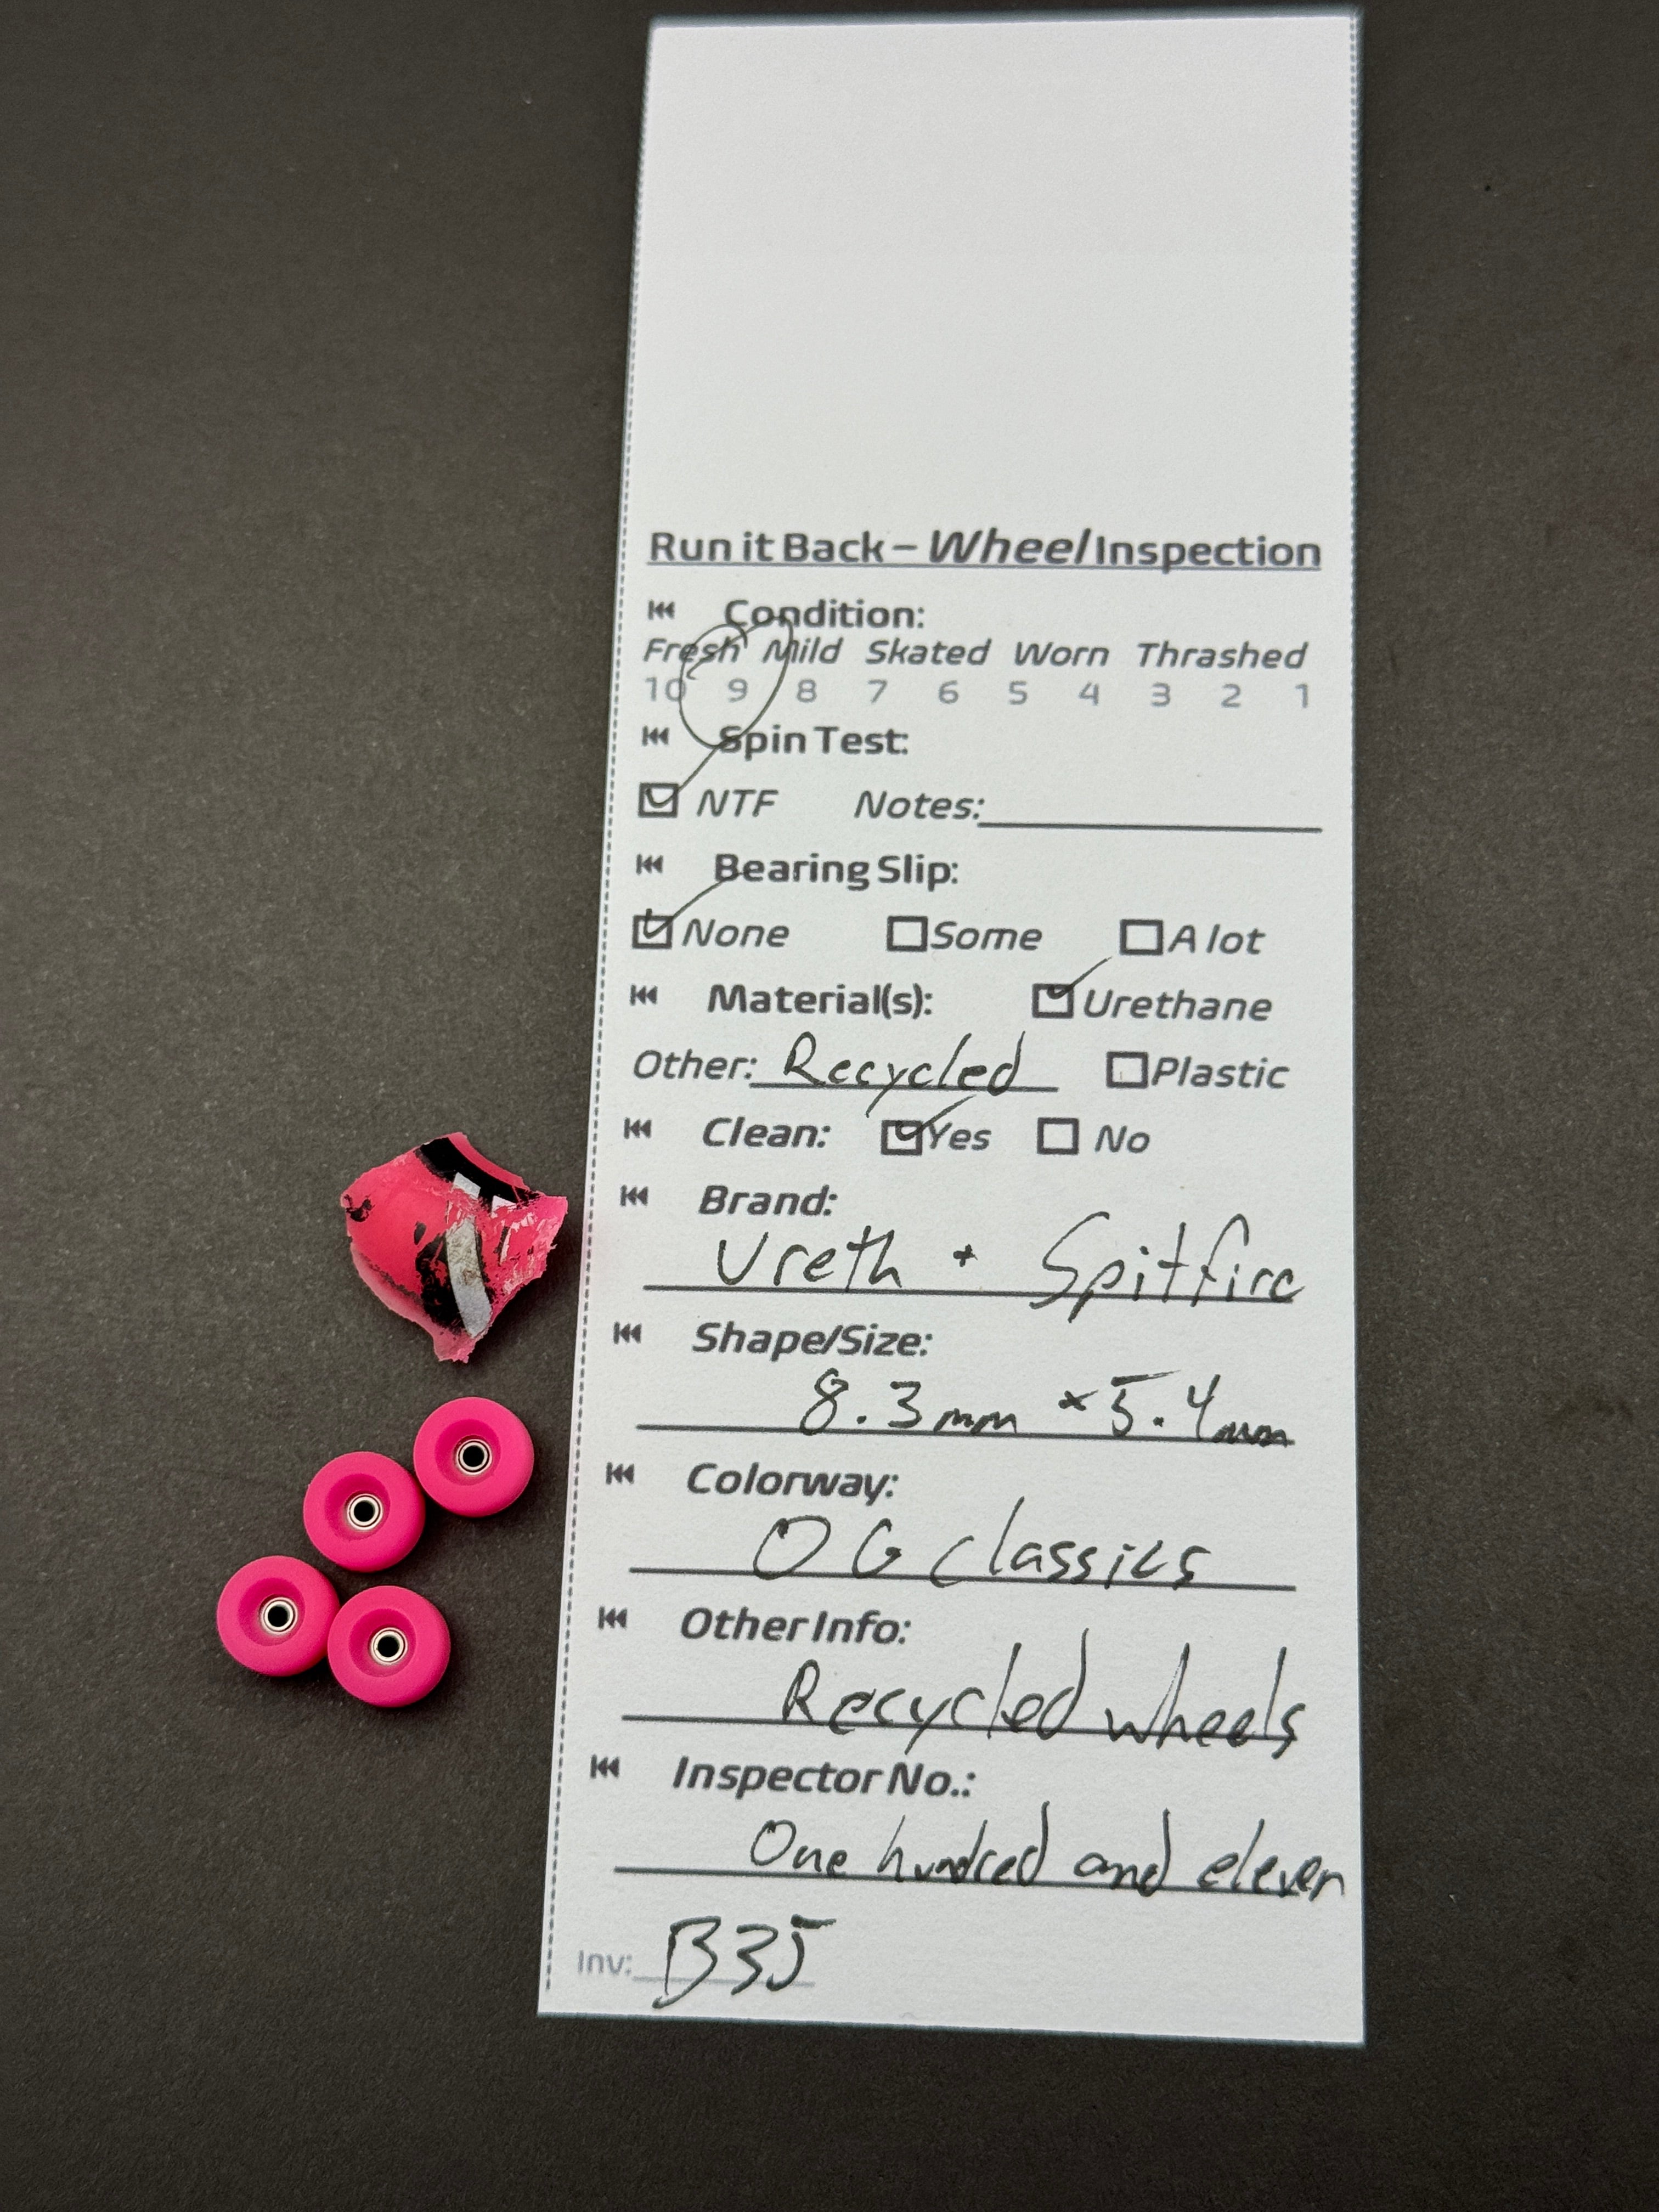 Run it Back – Wheel Inspection
Condition:
Fresh Mild Skated Worn Thrashed
10 9 8 7 6 5 4 3 2 1
Spin Test:
NTF Notes:
Bearing Slip:
None Some A lot
Material(s): Urethane
Other: Recycled Plastic
Clean: Yes No
Brand:
Ureth + Spitfire
Shape/Size:
8.3mm × 5.4mm
Colorway:
OG classics
Other Info:
Recycled wheels
Inspector No.:
One hundred and eleven
Inv: B35